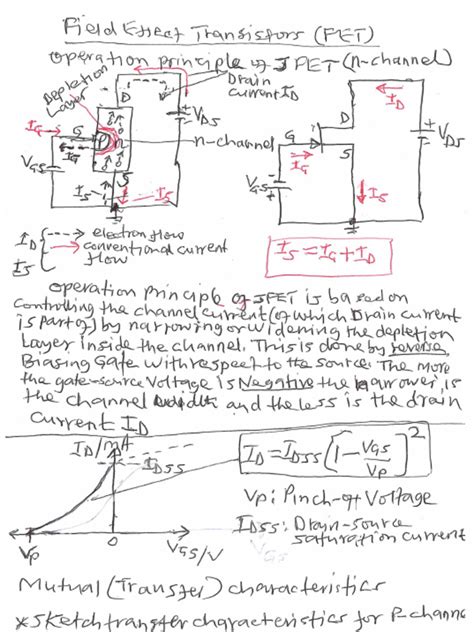 Field Effect Transistors (FET)
operation principle of JFET (n-channel)
Depletion
Layer
D
Drain
current ID
IG
G
P
n-channel
VDS
VGS
IG
IS
S
IS
ID
D
G
IG
S
VDS
VGS
IS
ID ---> electron flow
IS → conventional current
flow
IS = IG + ID
operation principle of JFET is based on
controlling the channel current (of which Drain current
is part of) by narrowing or widening the depletion
Layer inside the channel. This is done by reverse
Biasing Gate with respect to the source. The more
the gate-source voltage is Negative the narrower is
the channel width and the less is the drain
current ID
ID/mA
IDSS
ID = IDSS (1 - VGS/VP)²
VP: Pinch-off Voltage
IDSS: Drain-source
saturation current
VP
0
VGS/V
Mutual (Transfer) characteristics
*Sketch transfer characteristics for P-channe